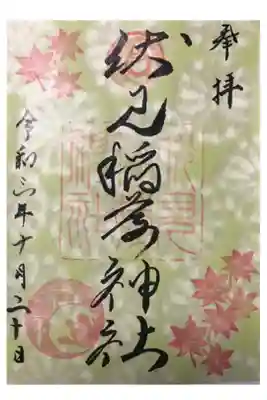 奉拝
伏見稲荷神社
令和六年十月二十日